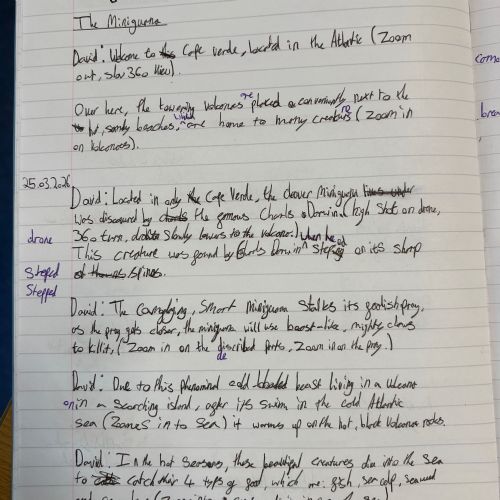 The Miniguana
David: Welcome to Cape verde, Located in the Atlantic (Zoom
out, slow 360 View).
Over here, the towering volcanoes are placed conveniently next to the
hot, sandy beaches, which are home to many creatures (Zoom in
on Volcanoes).
25.03.2026
David: Located in only the Cape Verde, the clever miniguana
was discoverd by the famous Charls Darwin. (high Shot on drone,
drone
360 turn, Slowly lowers to the volcano.)
This creature was found by Charls Darwin when he stepped on its sharp
Steped
Stepped
spines.
David: The camoflaging, Smart miniguana Stalks its foolish prey,
as the prey gets closer, the miniguana will use beast-like, mighty claws
to kill it, (Zoom in on the described parts, Zoom in on the prey.)
de
David: Due to this phenominal cold blooded beast living in a volcano
on a scorching island, after its swim in the cold Atlantic
sea (Zooms in to sea) it warms up on the hot, black Volcanoe rocks.
David: In the hot seasons, these beautifull creatures dive into the Sea
to catch their 4 types of food, which are: fish, sea seaweed